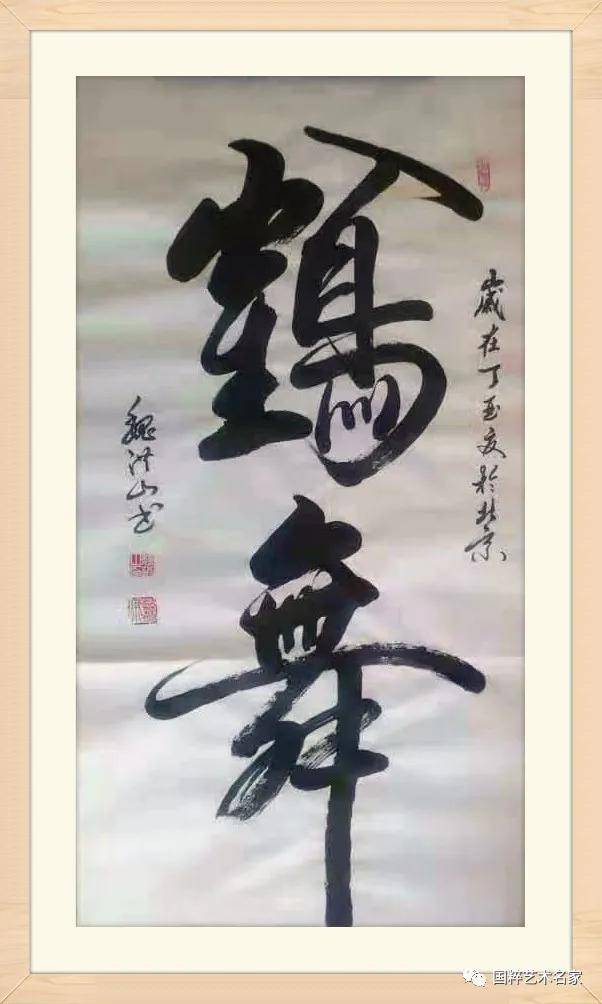 歲在丁酉夏於北京
鶴舞
魏洪山书
国粹艺术名家